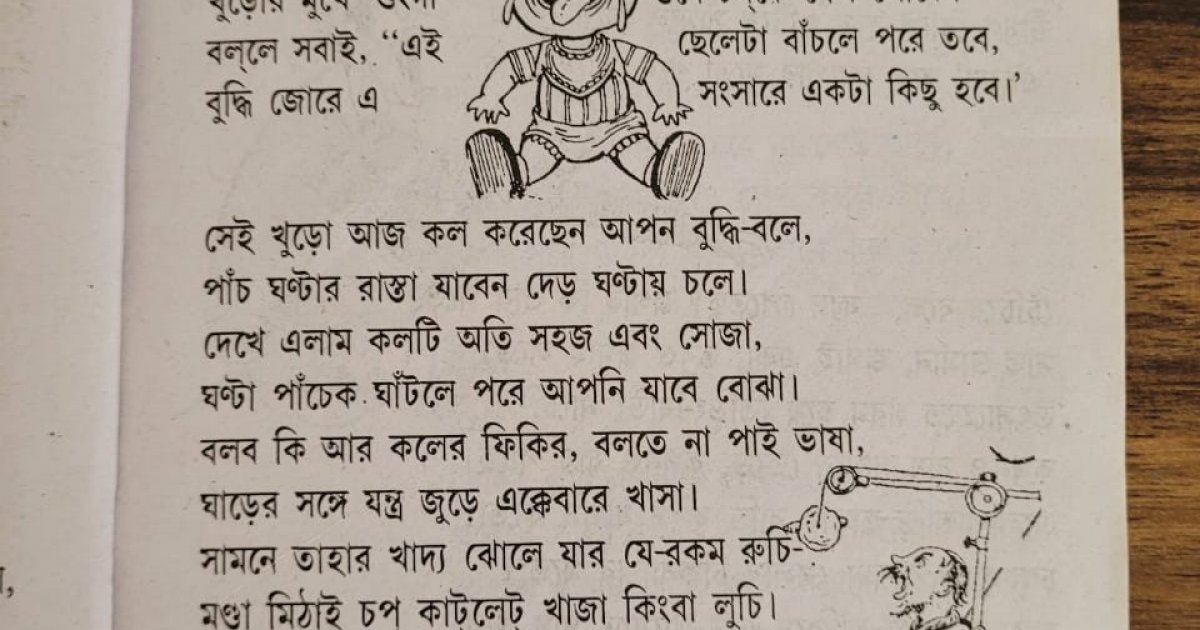 বল্‌লে সবাই, “এই ছেলেটা বাঁচলে পরে তবে,
বুদ্ধি জোরে এ সংসারে একটা কিছু হবে।’
সেই খুড়ো আজ কল করেছেন আপন বুদ্ধি-বলে,
পাঁচ ঘণ্টার রাস্তা যাবেন দেড় ঘণ্টায় চলে।
দেখে এলাম কলটি অতি সহজ এবং সোজা,
ঘণ্টা পাঁচেক ঘাঁটলে পরে আপনি যাবে বোঝা।
বলব কি আর কলের ফিকির, বলতে না পাই ভাষা,
ঘাড়ের সঙ্গে যন্ত্র জুড়ে এক্কেবারে খাসা।
সামনে তাহার খাদ্য ঝোলে যার যে-রকম রুচি-
মণ্ডা মিঠাই চপ কাট্‌লেট্ খাজা কিংবা লুচি।